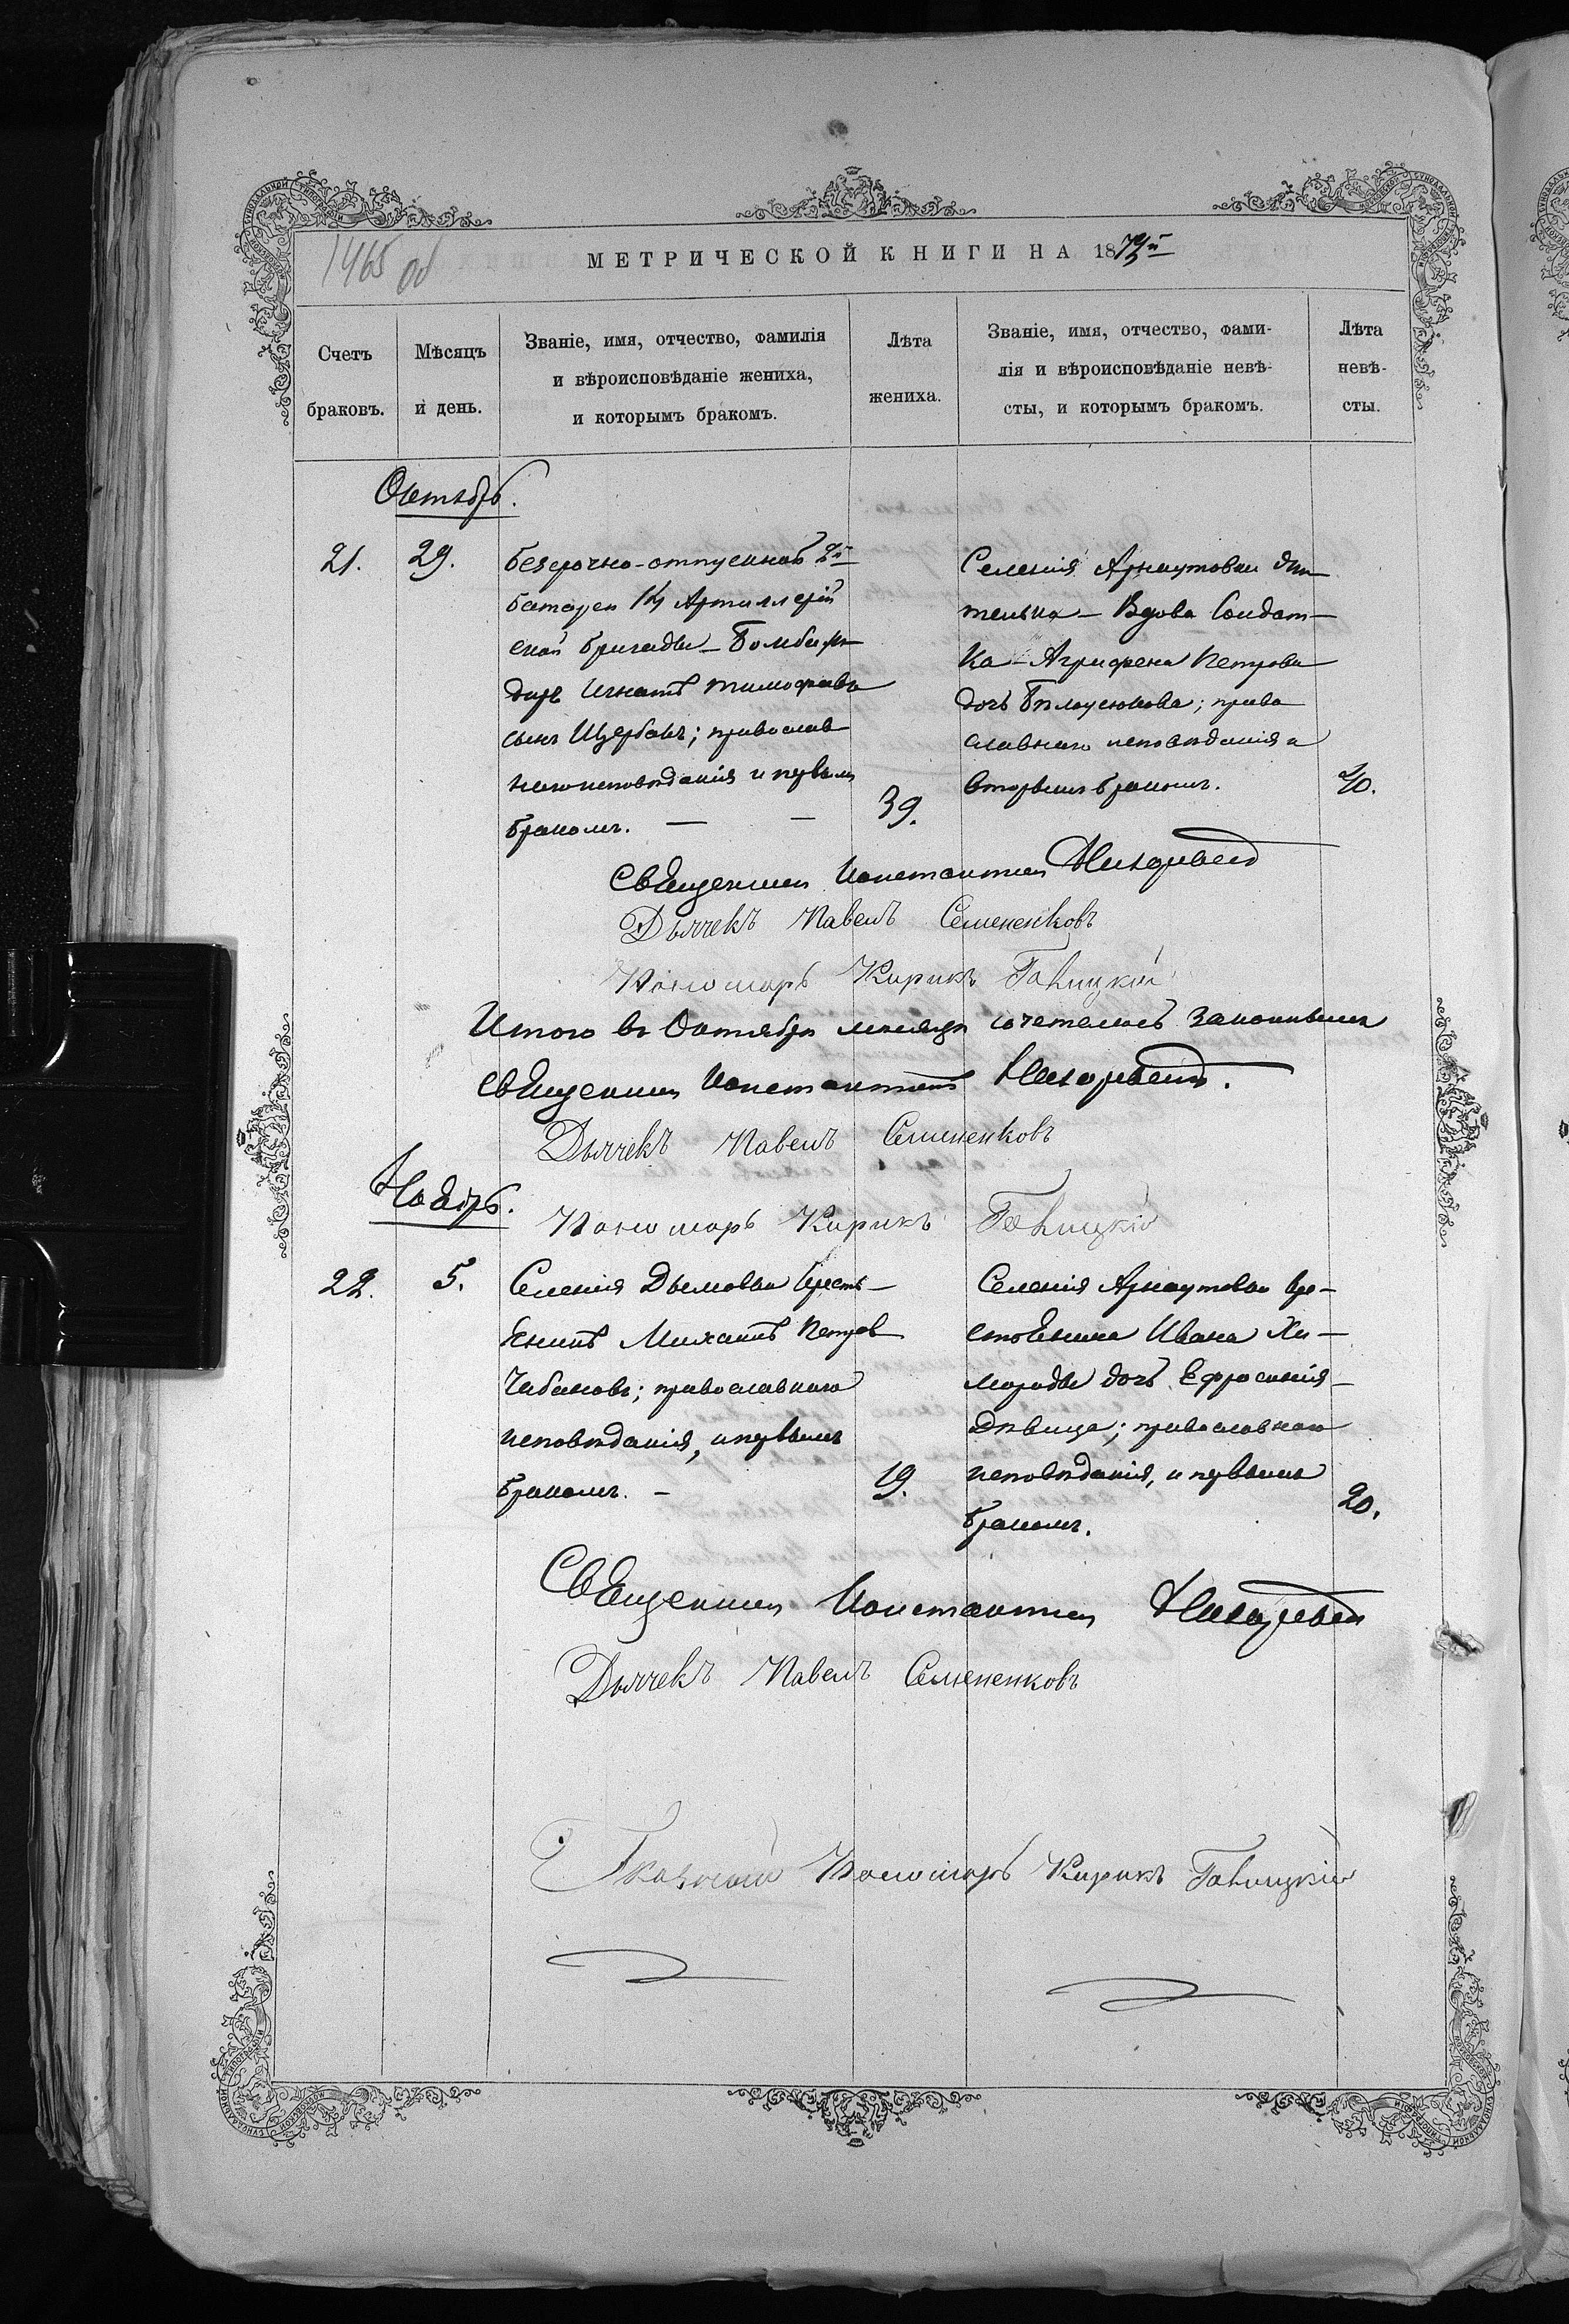 1465 об
МЕТРИЧЕСКОЙ КНИГИ НА 1873й
Счетъ браковъ.
Мѣсяцъ и день.
Званіе, имя, отчество, фамилія
и вѣроисповѣданіе жениха,
и которымъ бракомъ.
Лѣта жениха.
Званіе, имя, отчество, фами-
лія и вѣроисповѣданіе невѣ-
сты, и которымъ бракомъ.
Лѣта невѣ-
сты.
Октябрь.
21. 29.
безсрочно-отпускной 2й
батареи 14 Артиллерій
ской бригады - Бомбар-
диръ Игнатъ Тимофѣевъ
сынъ Щербакъ; православ
наго исповѣданія и первымъ
бракомъ. — —
39.
Селенія Арнаутовки жи
телька - Вдова Солдат-
ка - Агрифена Петрова
дочь Бѣлоусюкова; право
славнаго исповѣданія и
вторымъ бракомъ.
40.
Священникъ Константинъ
Дьячекъ Павелъ Семененковъ
Пономарь Кирикъ Галицкій
Итого въ Октябрѣ мѣсяцѣ сочеталось законнымъ
Священникъ Константинъ
Дьячекъ Павелъ Семененковъ
Ноябрь.
Пономарь Кирикъ Галицкій
22. 5.
Селенія Дымовки крестья-
нинъ Михаилъ Петровъ
Чабановъ; православнаго
исповѣданія, и первымъ
бракомъ. -
19.
Селенія Арнаутовки кре-
стьянина Ивана Хи-
мороды дочь Ефросинія -
дѣвица; православнаго
исповѣданія, и первымъ
бракомъ.
20.
Священникъ Константинъ
Дьячекъ Павелъ Семененковъ
Пономарь Кирикъ Галицкій